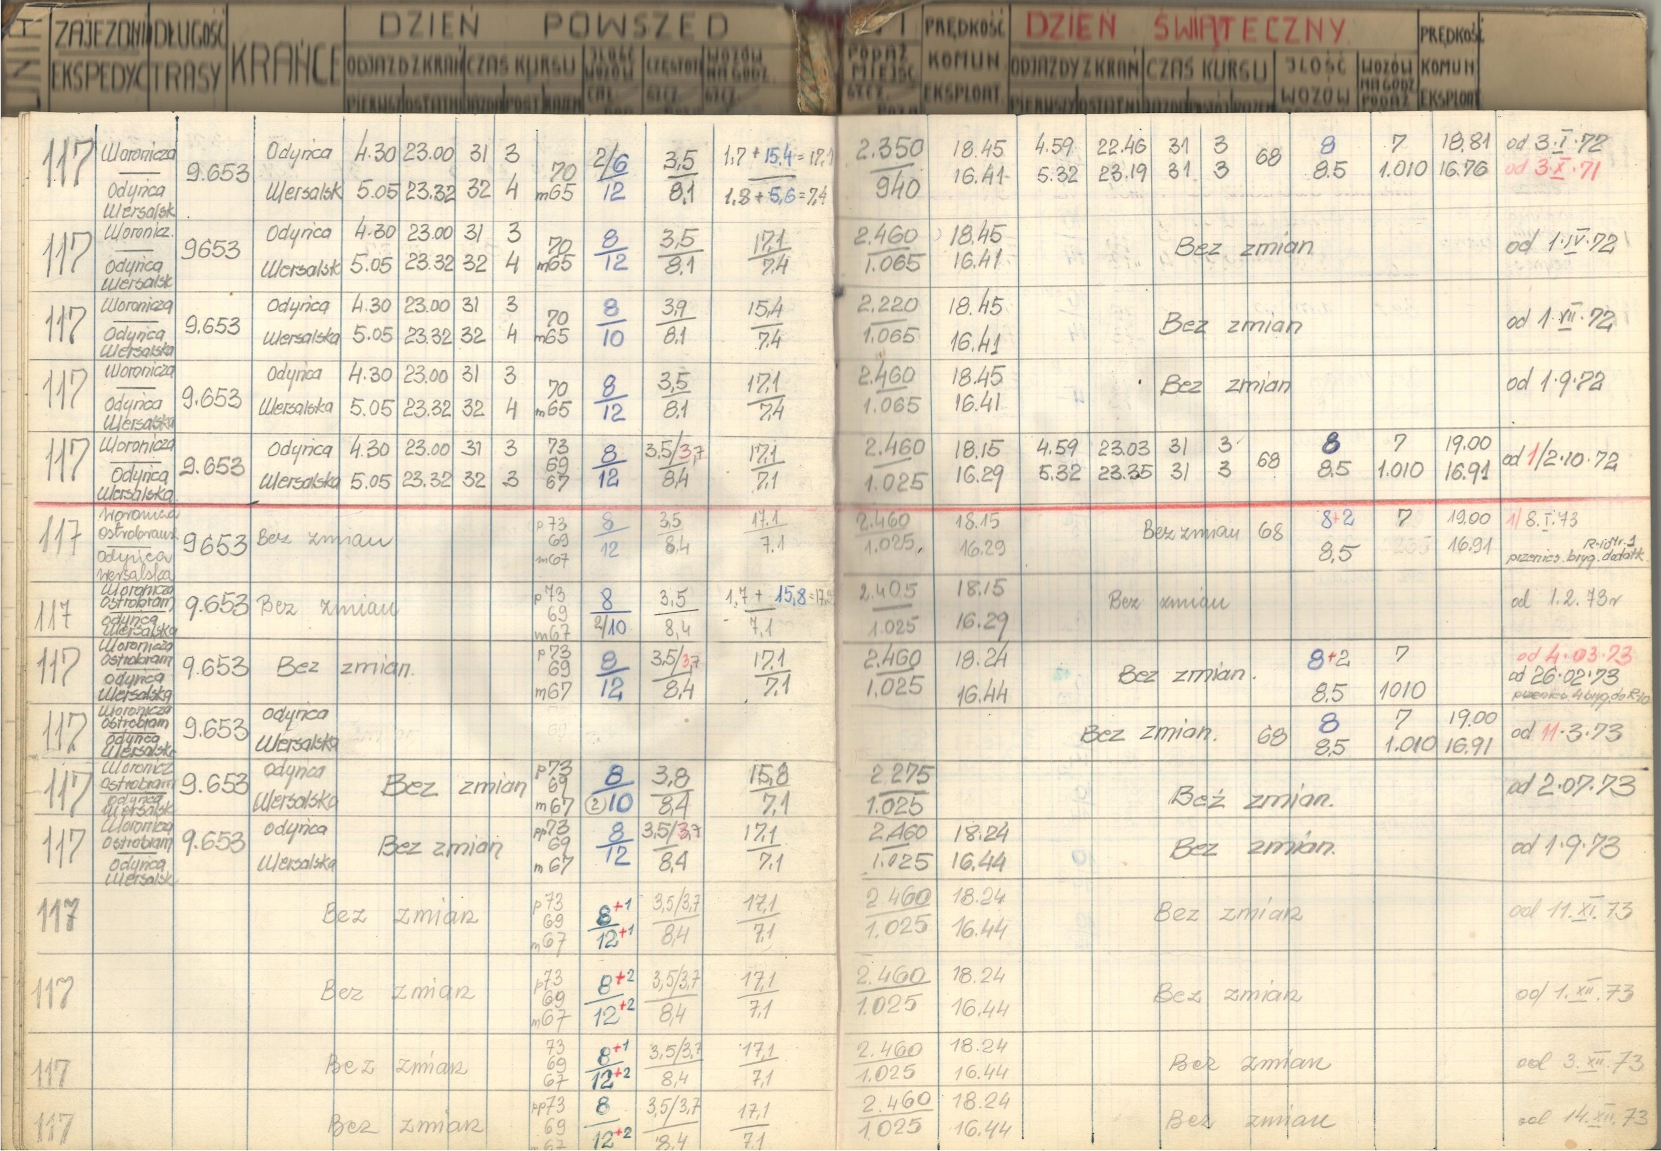 LINIA ZAJEZDNI EKSPEDYC DŁUGOŚĆ TRASY KRAŃCE
DZIEŃ POWSZED
ODJAZD Z KRAŃ CZAS KURSU ILOŚĆ WOZÓW CZĘSTOT WOZÓW NA GODZ
PIERWSZ OSTATNI JAZDA POST RAZEM
PODAŻ MIEJSC
PRĘDKOŚĆ KOMUN EKSPLOAT
DZIEŃ ŚWIĄTECZNY
ODJAZDY Z KRAŃ CZAS KURSU ILOŚĆ WOZÓW WOZÓW NA GODZ PODAŻ
PIERWSZY OSTATNI JAZDA POSTÓJ RAZEM
PRĘDKOŚĆ KOMUN EKSPLOAT
117 Woronicza 9.653 Odyńca 4.30 23.00 31 3 70 2/6 3,5 1,7 + 15,4 = 17,1 2.350 18.45 4.59 22.46 31 3 68 8 7 18,81 od 3.I.72
Odyńca Wersalsk Wersalsk 5.05 23.32 32 4 m65 12 8,1 1,8 + 5,6 = 7,4 940 16.41 5.32 23.19 31 3 8.5 1.010 16.76 od 3.X.71
117 Woronicz. 9653 Odyńca 4.30 23.00 31 3 70 8 3,5 17,1 2.460 18.45 Bez zmian od 1.IV.72
Odyńca Wersalsk Wersalsk 5.05 23.32 32 4 m65 12 8,1 7,4 1.065 16.41
117 Woronicza 9.653 Odyńca 4.30 23.00 31 3 70 8 3,9 15,4 2.220 18.45 Bez zmian od 1.VII.72
Odyńca Wersalska Wersalska 5.05 23.32 32 4 m65 10 8,1 7,4 1.065 16.41
117 Woronicza 9.653 Odyńca 4.30 23.00 31 3 70 8 3,5 17,1 2.460 18.45 Bez zmian od 1.9.72
Odyńca Wersalska Wersalska 5.05 23.32 32 4 m65 12 8,1 7,4 1.065 16.41
117 Woronicza 9.653 Odyńca 4.30 23.00 31 3 73 69 8 3.5/3,7 17,1 2.460 18.15 4.59 23.03 31 3 68 8 7 19.00 od 1/2.10.72
Odyńca Wersalska Wersalska 5.05 23.32 32 3 67 12 8,4 7,1 1.025 16.29 5.32 23.35 31 3 8.5 1.010 16.91
117 Woronicza Ostrobrams 9653 Bez zmian p73 69 8 3,5 17,1 2.460 18.15 Bez zmian 68 8+2 7 19.00 1/8.I.73
Odyńca Wersalska m67 12 8,4 7,1 1.025 16.29 8,5 16.91 przenies. bryg. dodatk
117 Woronicza Ostrobram 9.653 Bez zmian p73 69 8 3,5 1,7 + 15,8 2.405 18.15 Bez zmian od 1.2.73r
Odyńca Wersalska m67 2/10 8,4 7,1 1.025 16.29
117 Woronicza Ostrobram 9.653 Bez zmian. p73 69 8 3,5/3,7 17,1 2.460 18.24 Bez zmian. 8+2 7 od 4.03.73
Odyńca Wersalska m67 12 8,4 7,1 1.025 16.44 8.5 1010 od 26.02.73
117 Woronicza Ostrobram 9.653 Odyńca Bez zmian. 68 8 7 19,00 od 11.3.73
Odyńca Wersalska Wersalska 8,5 1.010 16.91
117 Woronicz Ostrobram 9.653 Odyńca Bez zmian p73 69 8 3,8 15,8 2.275 Bez zmian. od 2.07.73
Odyńca Wersalsk Wersalska m67 (2)10 8,4 7,1 1.025
117 Woronicza Ostrobram 9.653 Odyńca Bez zmian pp73 69 8 3,5/3,7 17,1 2.460 18.24 Bez zmian. od 1.9.73
Odyńca Wersalsk Wersalska m67 12 8,4 7,1 1.025 16.44
117 Bez zmian p73 69 8+1 3,5/3,7 17,1 2.460 18.24 Bez zmian od 11.XI.73
m67 12+1 8,4 7,1 1.025 16.44
117 Bez zmian p73 69 8+2 3,5/3,7 17,1 2.460 18.24 Bez zmian od 1.XII.73
m67 12+2 8,4 7,1 1.025 16.44
117 Bez zmian 73 69 8+1 3,5/3,7 17,1 2.460 18.24 Bez zmian od 3.XII.73
67 12+2 8,4 7,1 1.025 16.44
117 Bez zmian pp73 69 8 3,5/3,7 17,1 2.460 18.24 Bez zmian od 14.XII.73
12+2 8,4 7,1 1.025 16.44